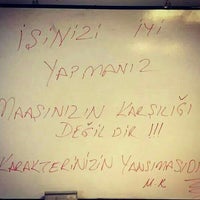 İŞİNİZİ İYİ
YAPMANIZ
MAAŞINIZIN KARŞILIĞI
DEĞİLDİR !!!
KARAKTERİNİZİN YANSIMASIDI
M.R